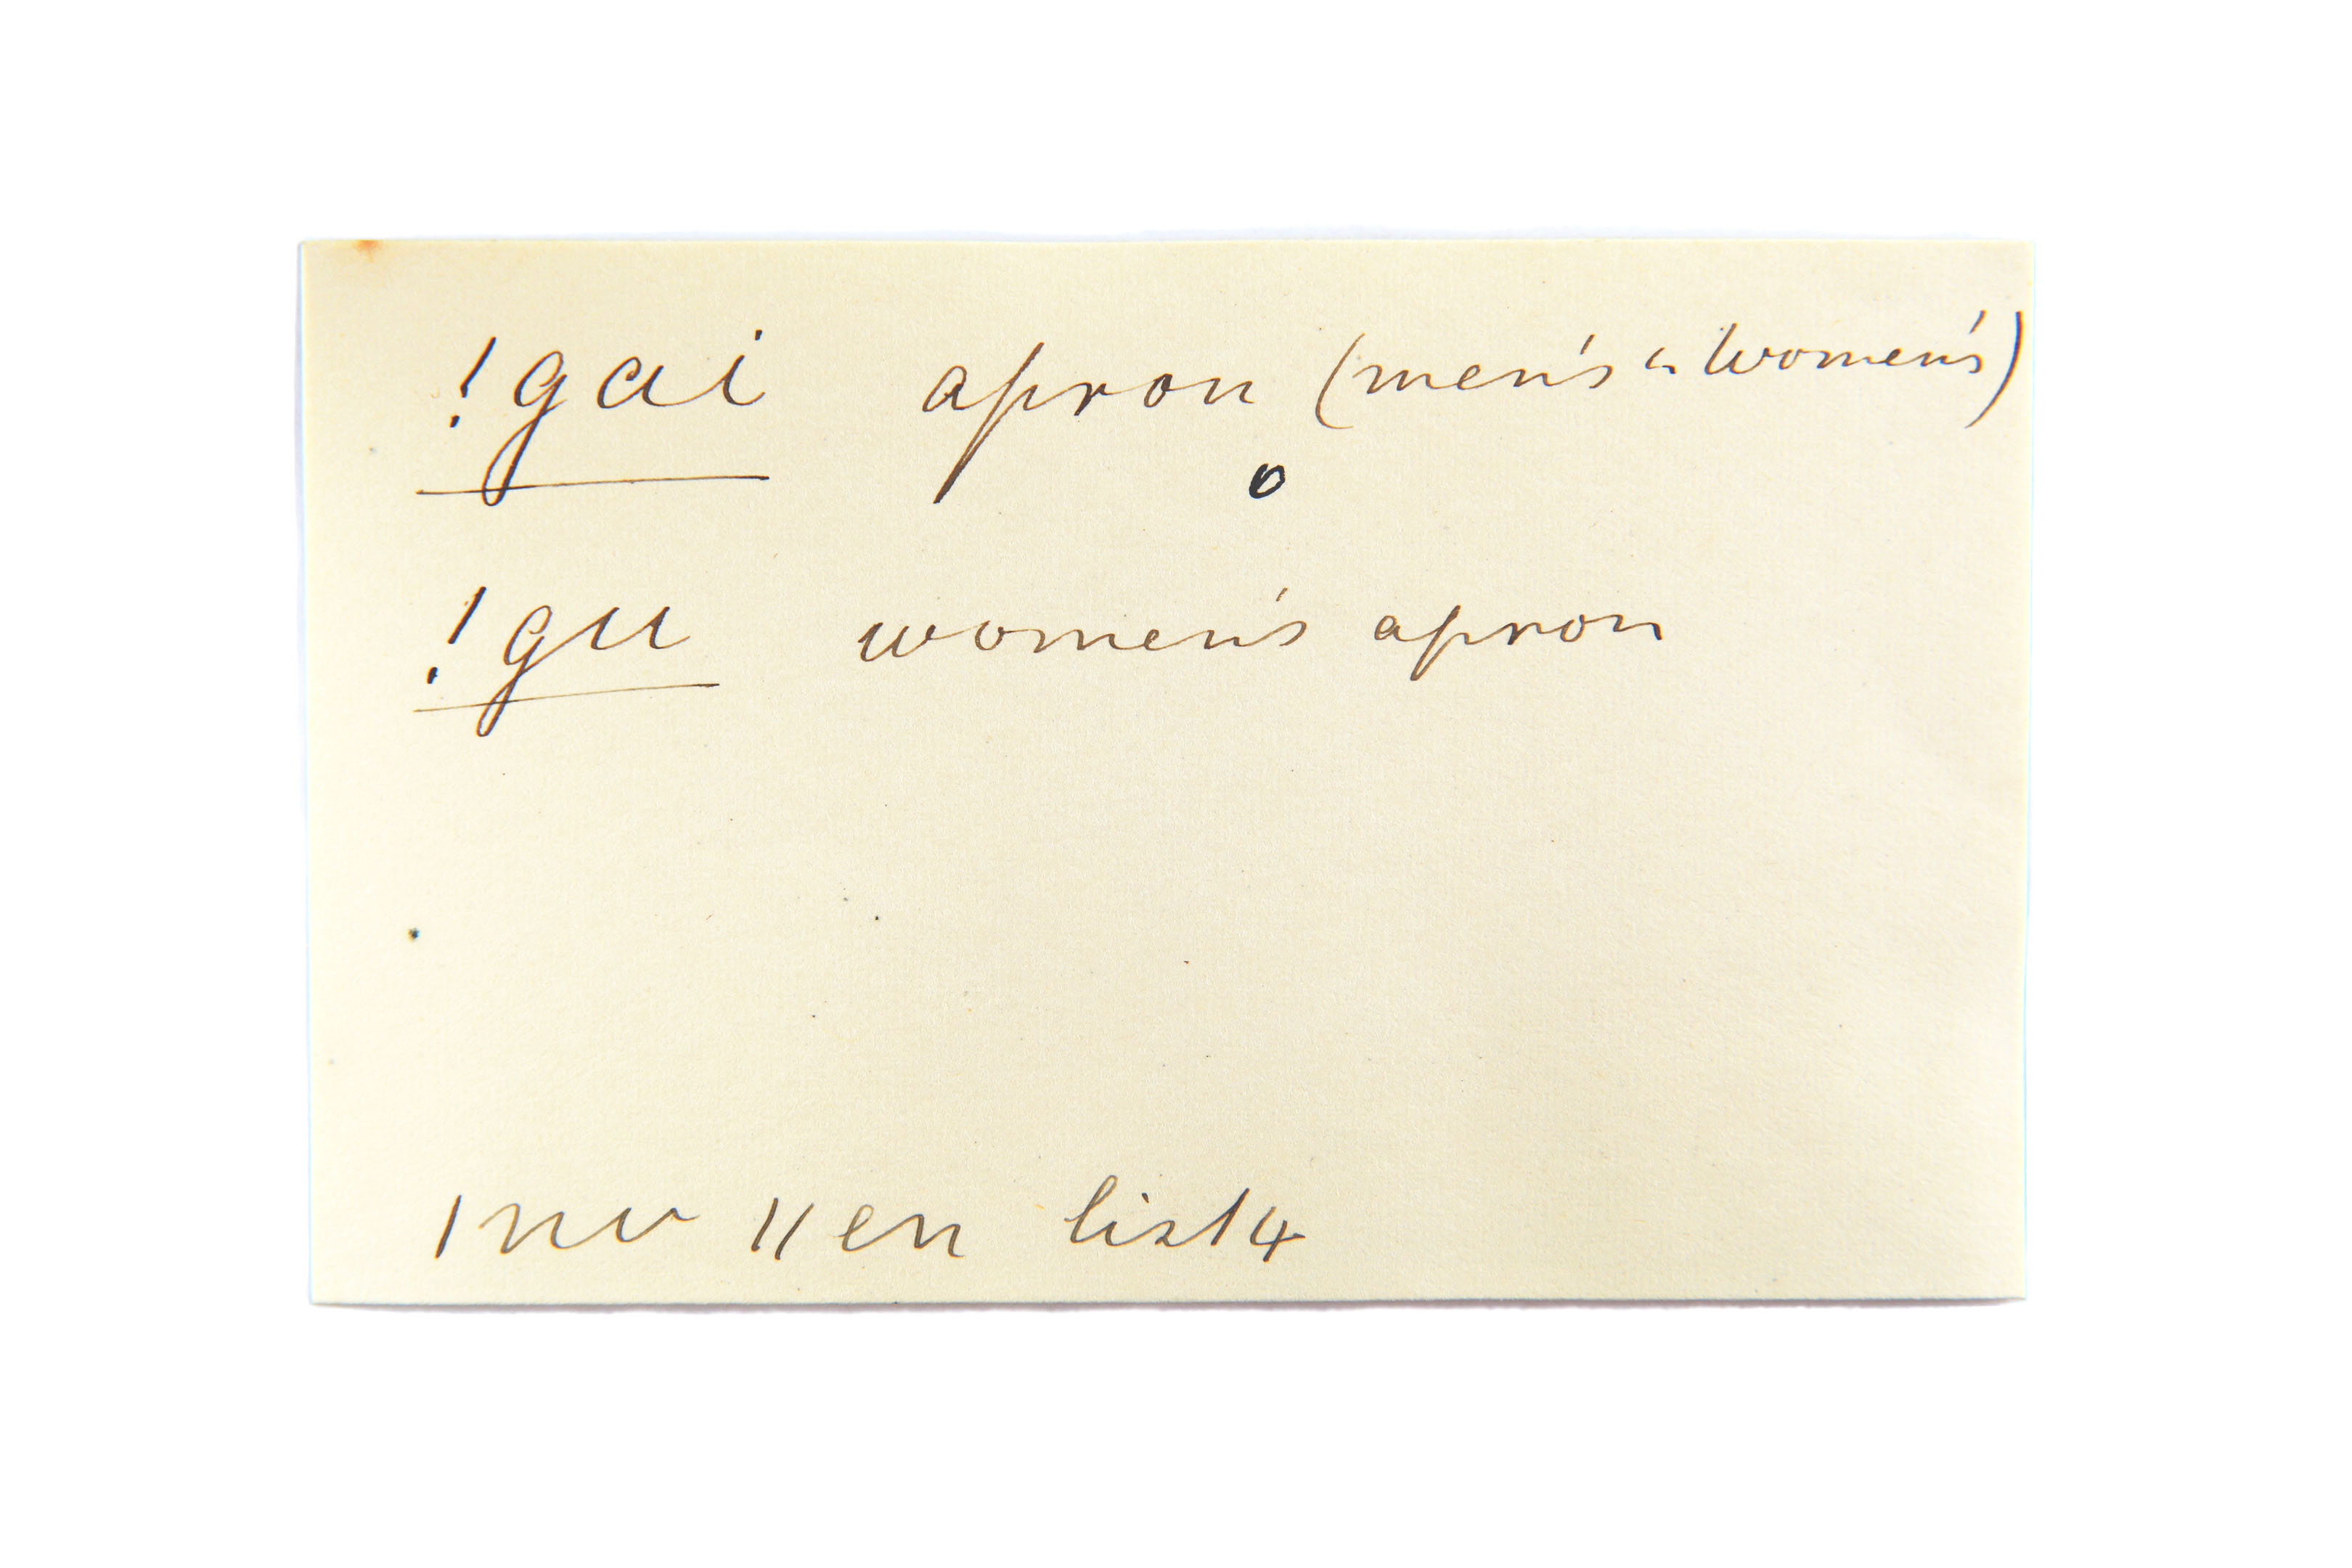 !gai apron (men's & women's)
o
!gu women's apron
|nu ||en list 4